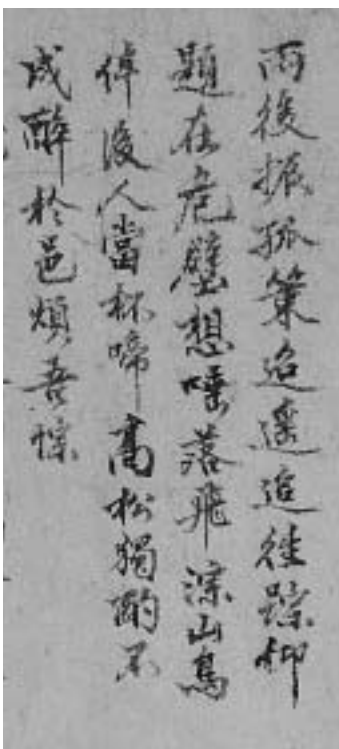 雨後振孤策迢遥追往蹤仰
題在危壁想唾落飛淙山鳥
倬後人當杯啼高松獨酌不
成醉於邑煩吾悰